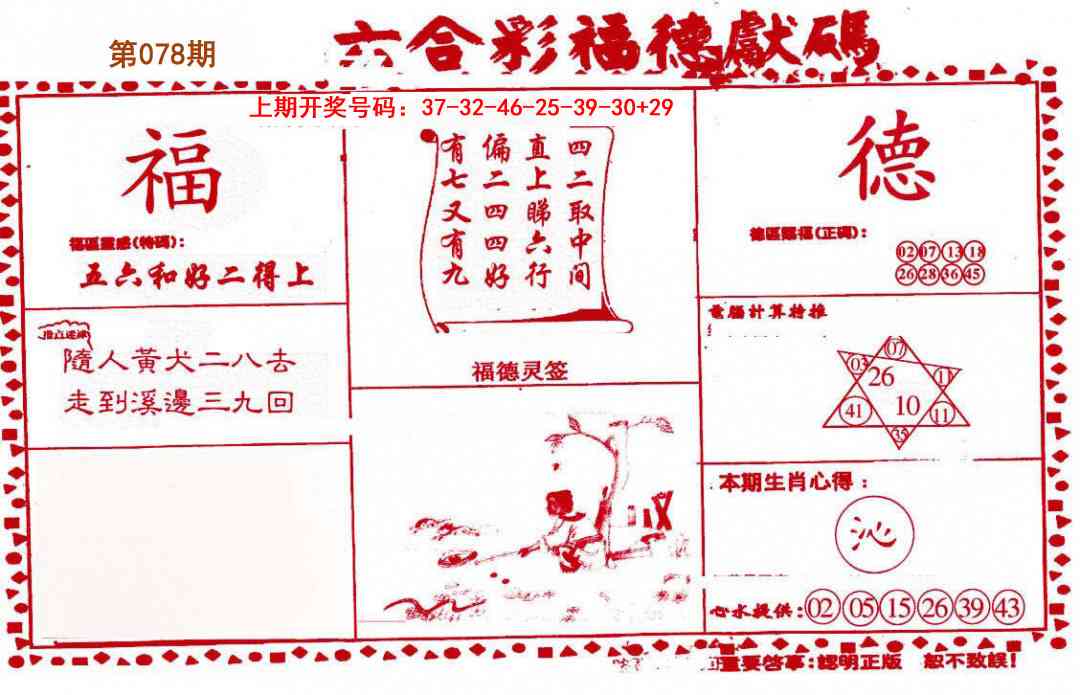 第078期
六合彩福德獻碼
上期开奖号码：37-32-46-25-39-30+29
福
福區靈感(特碼)：
五六和好二得上
隨人黃犬二八去
走到溪邊三九回
四二取中间
直上睇六行
偏二四四好
有七又有九
福德灵签
德
德區賜福(正碼)：
02 07 13 18
26 28 36 45
電腦計算特推
07
03 26 1
41 10 11
35
本期生肖心得：
沁
心水提供：02 05 15 26 39 43
重要啓事：認明正版 恕不致誤！